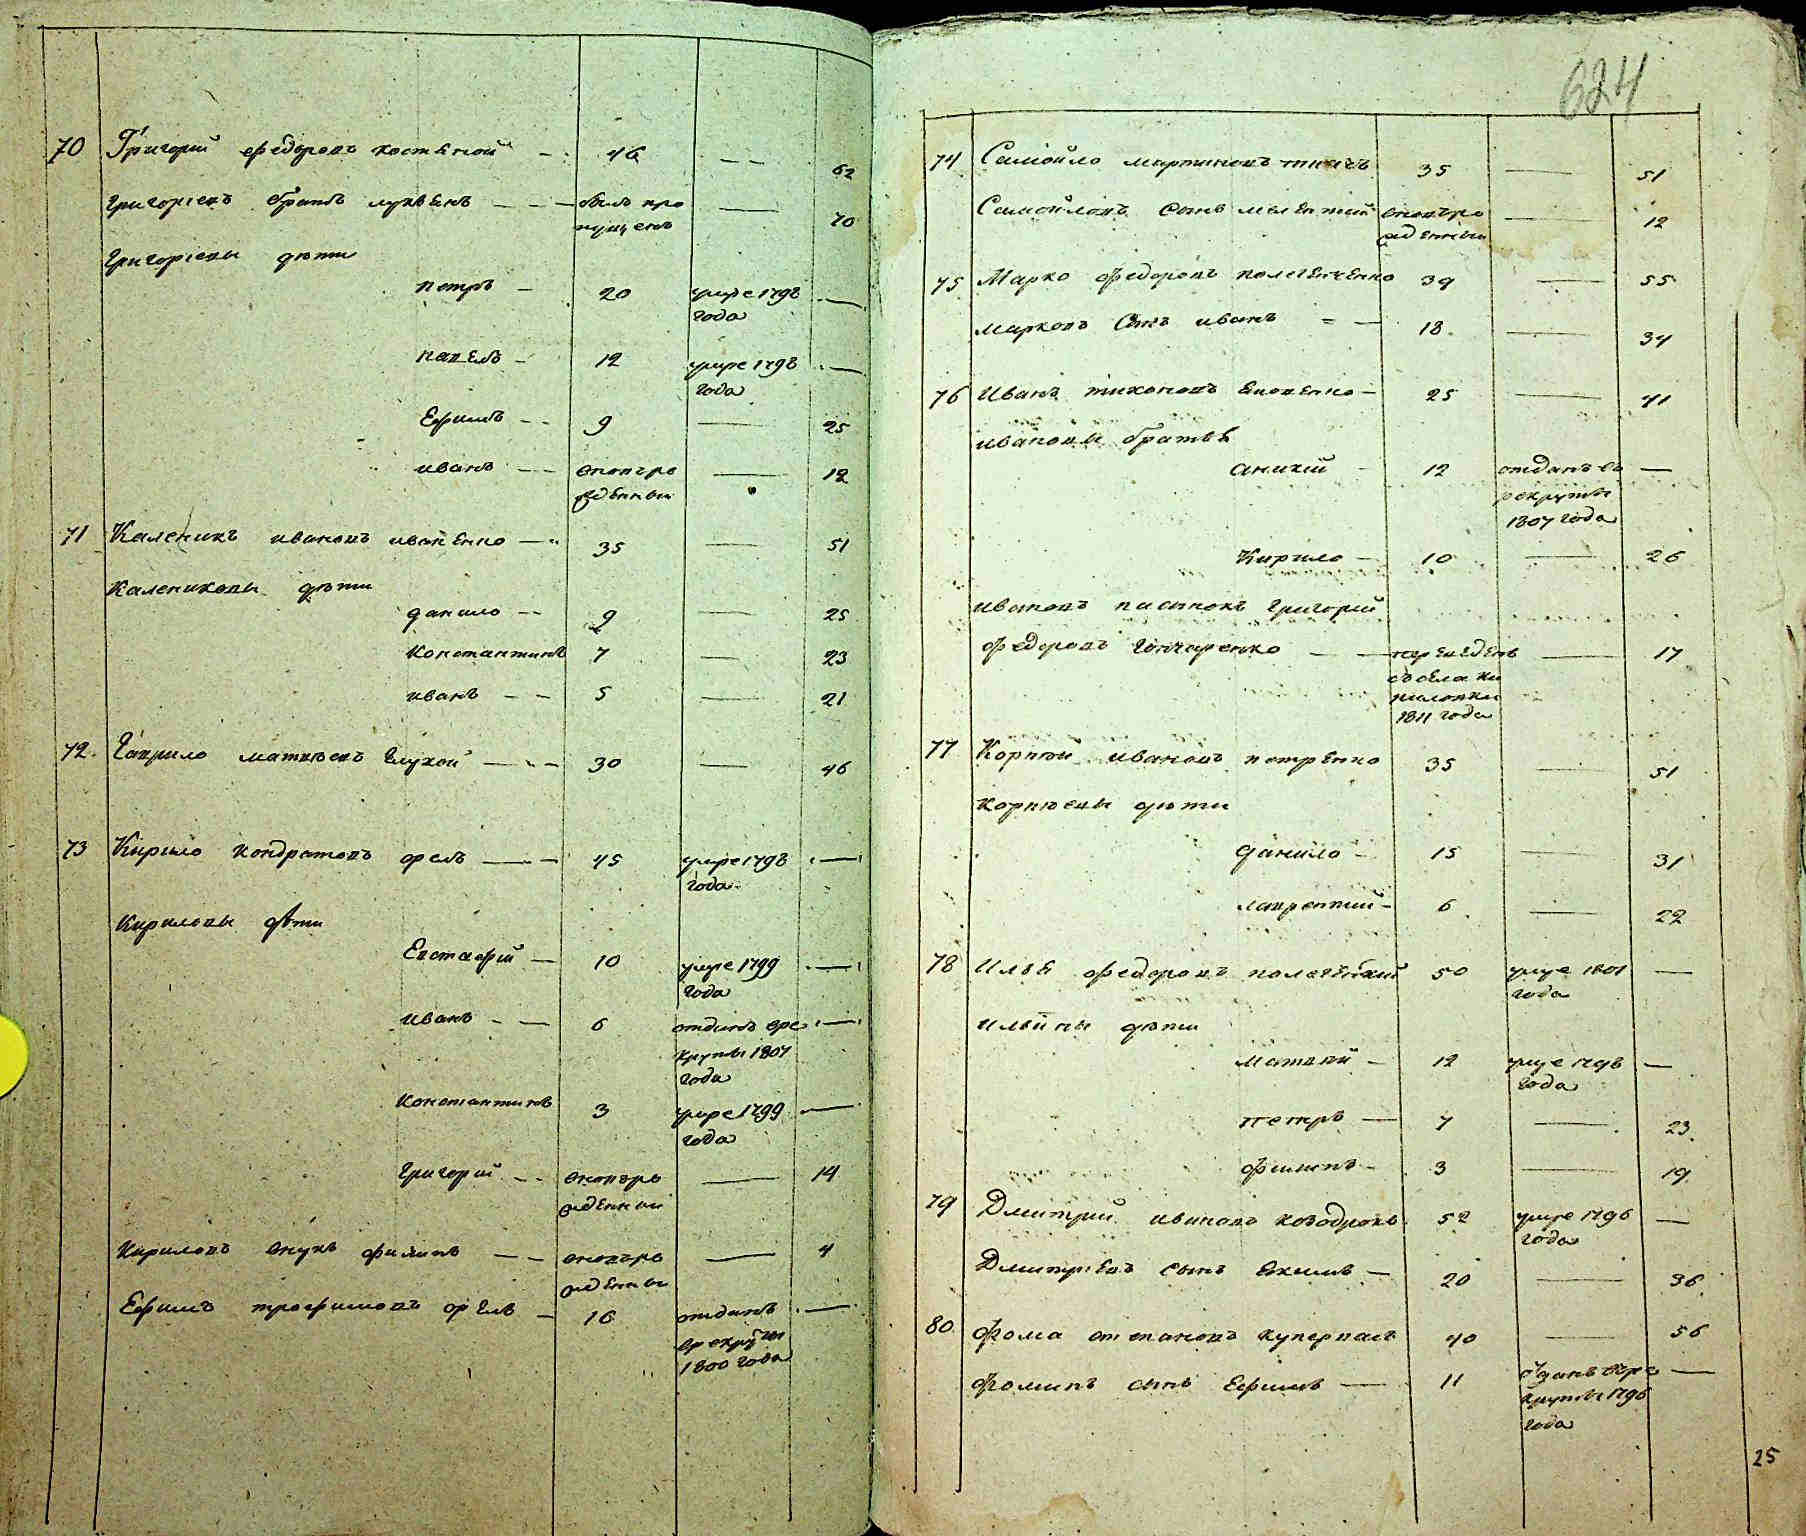 70 Григорій Федоровъ костяной 46 — — 62
Григоріевъ братъ лукьянъ — — былъ про — 70
пущенъ
Григоріевы дѣти
петръ — 20 умре 1798 —
года
павелъ — 12 умре 1798 —
года
Ефимъ — 9 — 25
иванъ — вновьро — 12
жденный
71 Каленикъ ивановъ иваненко — 35 — 51
Калениковы дѣти
данило — 9 — 25
Константинъ 7 — 23
иванъ — 5 — 21
72. Гаврило матвѣевъ глухой — 30 — 46
73 Кирило кондратовъ орелъ — 45 умре 1798 —
года
Кириловы дѣти
Евстафій — 10 умре 1799 —
года
иванъ — 6 отданъ вре —
круты 1807
года
Константинъ 3 умре 1799 —
года
Григорій — вновьро — 14
жденный
Кириловъ внукъ филипъ — вновьро — 4
жденный
Ефимъ трофимовъ орелъ — 16 отданъ —
врекруты
1800 года
624
74 Самойло мартиновъ ткачъ 35 — 51
Самойловъ сынъ мелентий вновьро — 12
жденный
75 Марко Федоровъ полегенченко 39 — 55
марковъ сынъ иванъ — 18 — 34
76 Иванъ тихоновъ яковенко — 25 — 41
ивановы братья
аникій — 12 отданъ въ —
рекруты
1807 года
Кирило — 10 — 26
ивановъ пасынокъ григорій
Федоровъ гончаренко — — переведенъ — 17
съ села
1811 года
77 Корнѣй ивановъ петренко 35 — 51
корнѣевы дѣти
данило — 15 — 31
лаврентий — 6 — 22
78 Илья Федоровъ 50 умре 1801 —
года
ильины дѣти
матвѣй — 12 умре 1796 —
года
петръ — 7 — 23.
филипъ — 3 — 19.
79 Дмитрий ивановъ козодровъ 52 умре 1796 —
года
Дмитріевъ сынъ якимъ — 20 — 36.
80. Фома степановъ куперпасъ 40 — 56
Фоминъ сынъ Ефимъ — 11 отданъ вре —
круты 1796
года
25